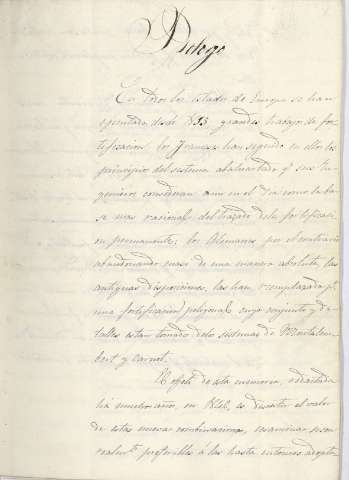 Prologo
En todos los estados de Europa se han
ejecutado, desde 1815 grandes trabajos de for-
tificacion los Franceses han seguido en ellos los
principios del sistema abaluartado y sus in-
genieros consideran aun en el dia como la ba-
se mas racional del trazado de la fortificaci-
on permanente; los Alemanes por el contrario
abandonando casi de una manera absoluta, las
antiguas disposiciones, las han remplazado pr.
una fortificacion poligonal cuyo conjunto y de-
talles estan tomados de los sistemas de Montalem-
bert y Carnot.
El objeto de esta memoria, redactada
há muchos años, en 1846, es discutir el valor
de estas nuevas combinaciones, examinar si son
realmte. preferibles á las hasta entonces adopta-